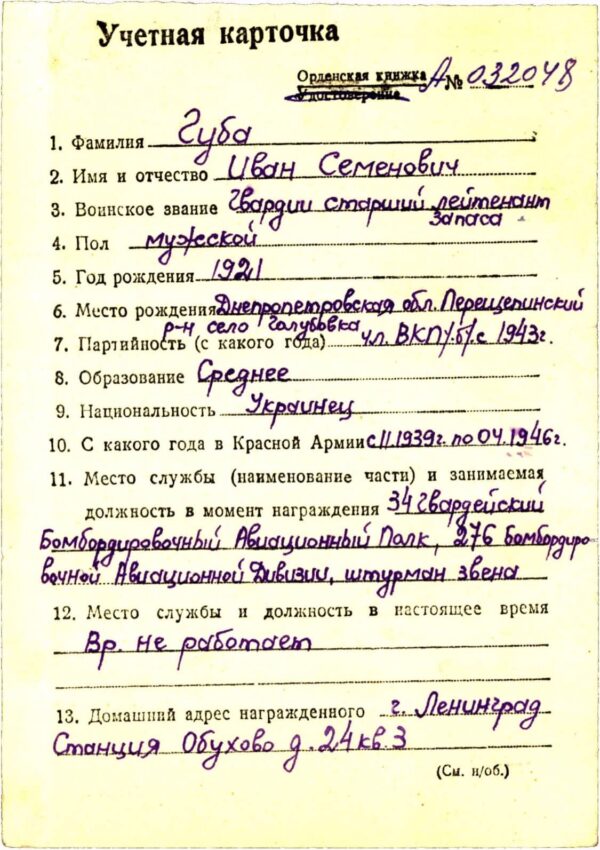 Учетная карточка
Орденская книжка А № 032048
Удостоверение
1. Фамилия Губа
2. Имя и отчество Иван Семенович
3. Воинское звание Гвардии старший лейтенант
запаса
4. Пол мужской
5. Год рождения 1921
6. Место рождения Днепропетровская обл. Перещепинский
р-н село Голубовка
7. Партийность (с какого года) чл. ВКП/б/ с 1943г.
8. Образование Среднее
9. Национальность Украинец
10. С какого года в Красной Армии с 11.1939г. по 04.1946г.
11. Место службы (наименование части) и занимаемая
должность в момент награждения 34 Гвардейский
Бомбордировочный Авиационный Полк, 276 Бомбордиро-
вочной Авиационной Дивизии, штурман звена
12. Место службы и должность в настоящее время
Вр. не работает
13. Домашний адрес награжденного г. Ленинград
Станция Обухово д. 24 кв. 3
(См. н/об.)